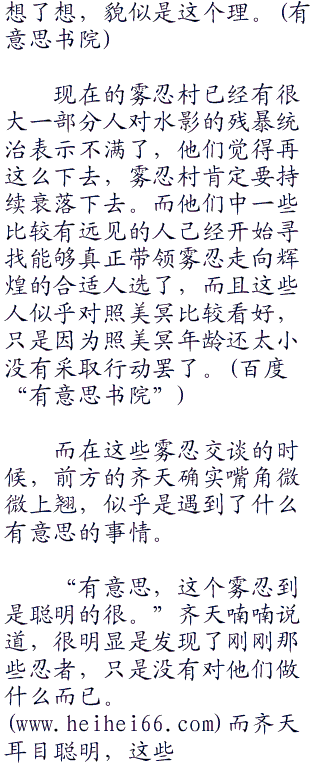 想了想，貌似是这个理。(有
意思书院)
现在的雾忍村已经有很
大一部分人对水影的残暴统
治表示不满了，他们觉得再
这么下去，雾忍村肯定要持
续衰落下去。而他们中一些
比较有远见的人己经开始寻
找能够真正带领雾忍走向辉
煌的合适人选了，而且这些
人似乎对照美冥比较看好，
只是因为照美冥年龄还太小
没有采取行动罢了。(百度
“有意思书院”)
而在这些雾忍交谈的时
候，前方的齐天确实嘴角微
微上翘，似乎是遇到了什么
有意思的事情。
“有意思，这个雾忍到
是聪明的很。”齐天喃喃说
道，很明显是发现了刚刚那
些忍者，只是没有对他们做
什么而已。
(www.heihei66.com)而齐天
耳目聪明，这些